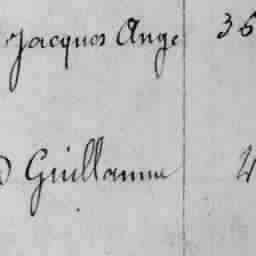 Jacques Ange 36
Guillaume